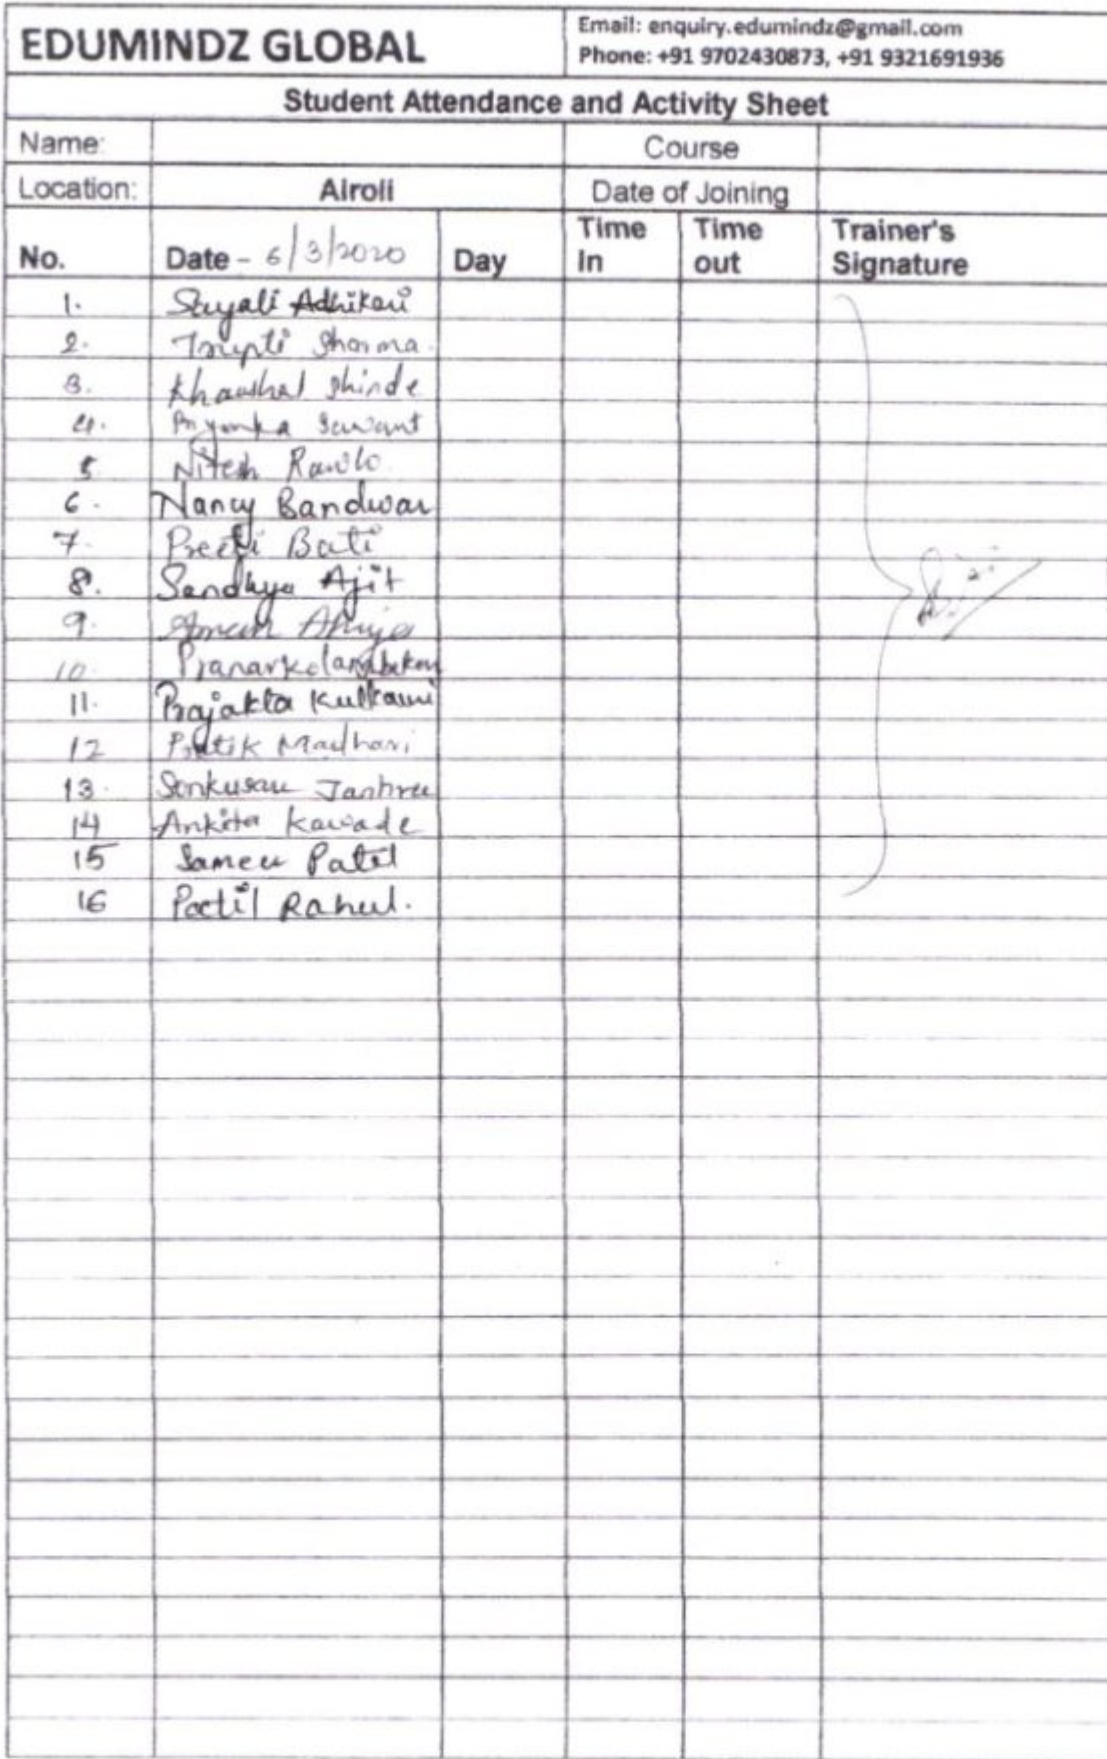 EDUMINDZ GLOBAL
Email: enquiry.edumindz@gmail.com
Phone: +91 9702430873, +91 9321691936
Student Attendance and Activity Sheet
Name: Course
Location: Airoli Date of Joining
No. Date - 6/3/2020 Day Time In Time out Trainer's Signature
1. Sayali Adhikari
2. Trupti Sharma
3. Khaushal Shinde
4. Priyanka Sawant
5 Nitesh
6. Nancy Bandwar
7. Preeti Bati
8. Sandhya Ajit
9. Ahuja
10.
11. Prajakta Kulkarni
12 Pratik Madhavi
13.
14 Ankita Kawade
15 Sameer Patil
16 Patil Rahul.